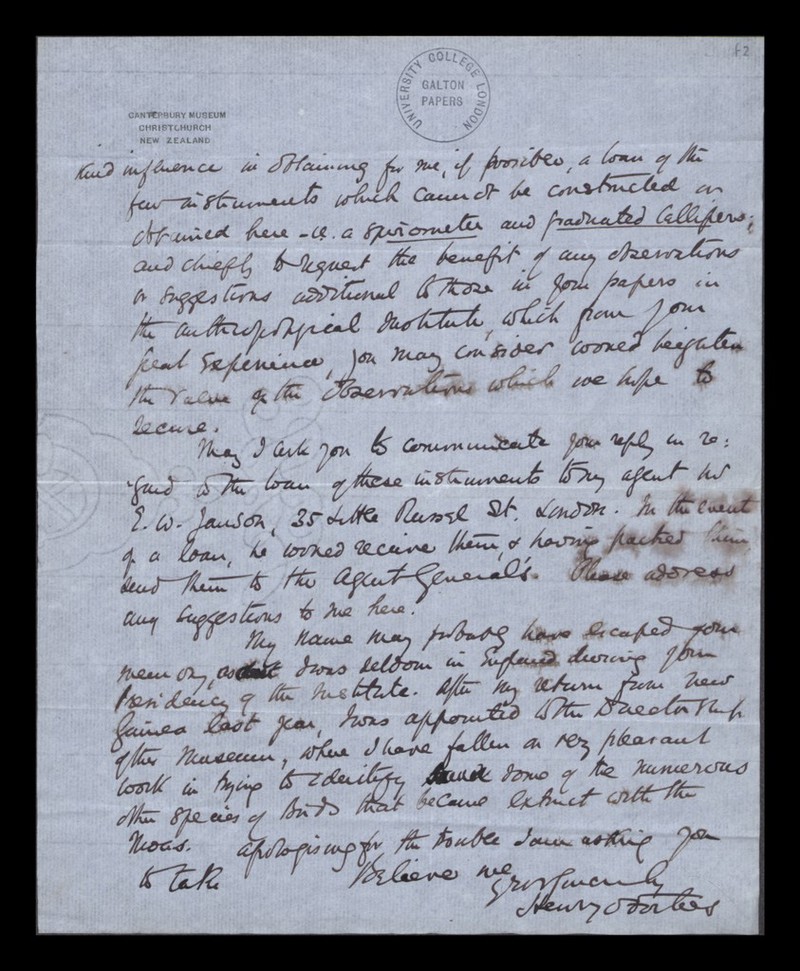 f2
UNIVERSITY COLLEGE LONDON
GALTON
PAPERS
CANTERBURY MUSEUM
CHRISTCHURCH
NEW ZEALAND
kind influence in obtaining for me, if possible, a loan of the
few instruments which cannot be constructed or
obtained here - i.e. a spirometer and graduated Callipers;
and chiefly to request the benefit of any observations
or suggestions additional to those in your papers in
the anthropological Institute, which from your
great experience, you may consider would heighten
the value of the observations which we hope to
secure.
May I ask you to communicate your reply in re:
gard to the loan of these instruments to my agent Mr
E. W. Janson, 35 Little Russel St. London. In the event
of a loan, he would receive them, & having packed them
send them to the Agent General's. Please address
any suggestions to me here.
My name may probably have escaped your
memory, as I was seldom in England during your
Presidency of the Institute. After my return from New
Guinea last year, I was appointed to the Directorship
of this Museum, where I have fallen on very pleasant
work in trying to identify some of the numerous
other species of Birds that became extinct with the
Moas. Apologising for the trouble I am asking you
to take
Believe me
Yrs sincerely
Henry O Forbes